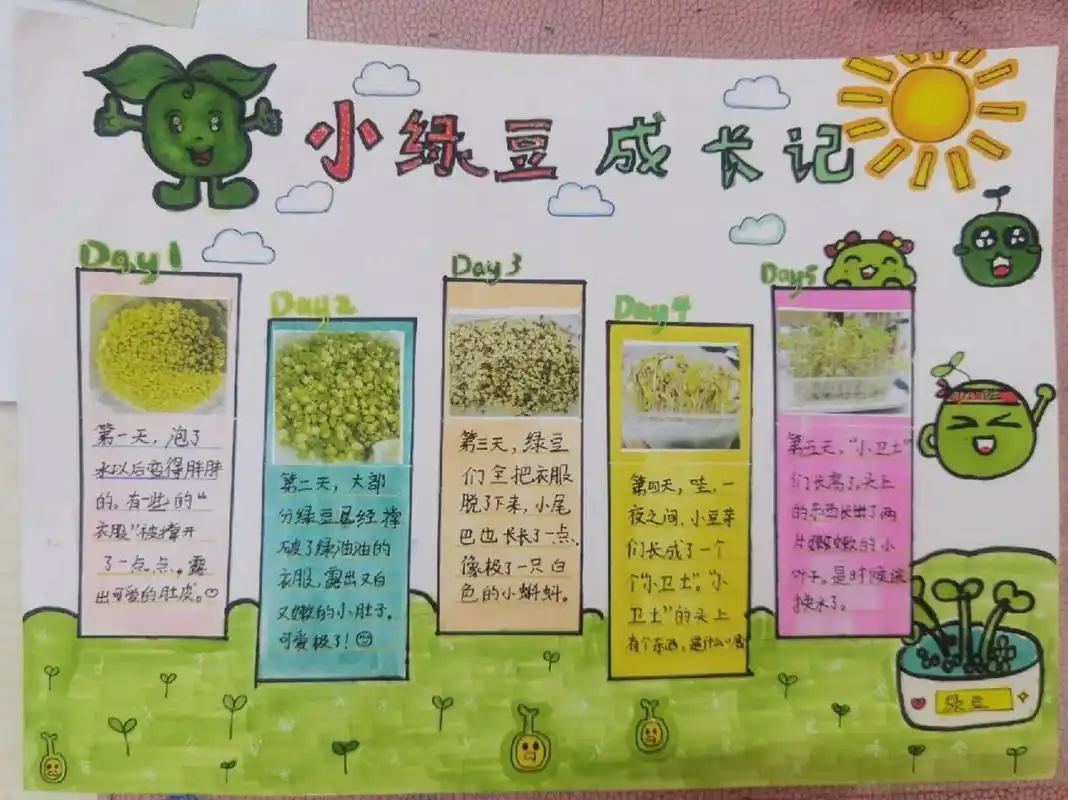 小绿豆成长记
Day1
第一天，泡了
水以后变得胖胖
的。有一些的“
衣服”被撑开
了一点点。露
出可爱的肚皮。
Day2
第二天，大部
分绿豆已经撑
破了绿油油的
衣服，露出又白
又嫩的小肚子。
可爱极了！
Day3
第三天，绿豆
们全把衣服
脱了下来，小尾
巴也长长了一点、
像极了一只白
色的小蝌蚪。
Day4
第四天，哇，一
夜之间，小豆芽
们长成了一个
个“小卫士”。“小
卫士”的头上
有个东西，是什么呢
Day5
第五天，“小卫士”
们长高了，头上
的东西长出了两
片嫩嫩的小
叶子。是时候该
换水了。
绿豆